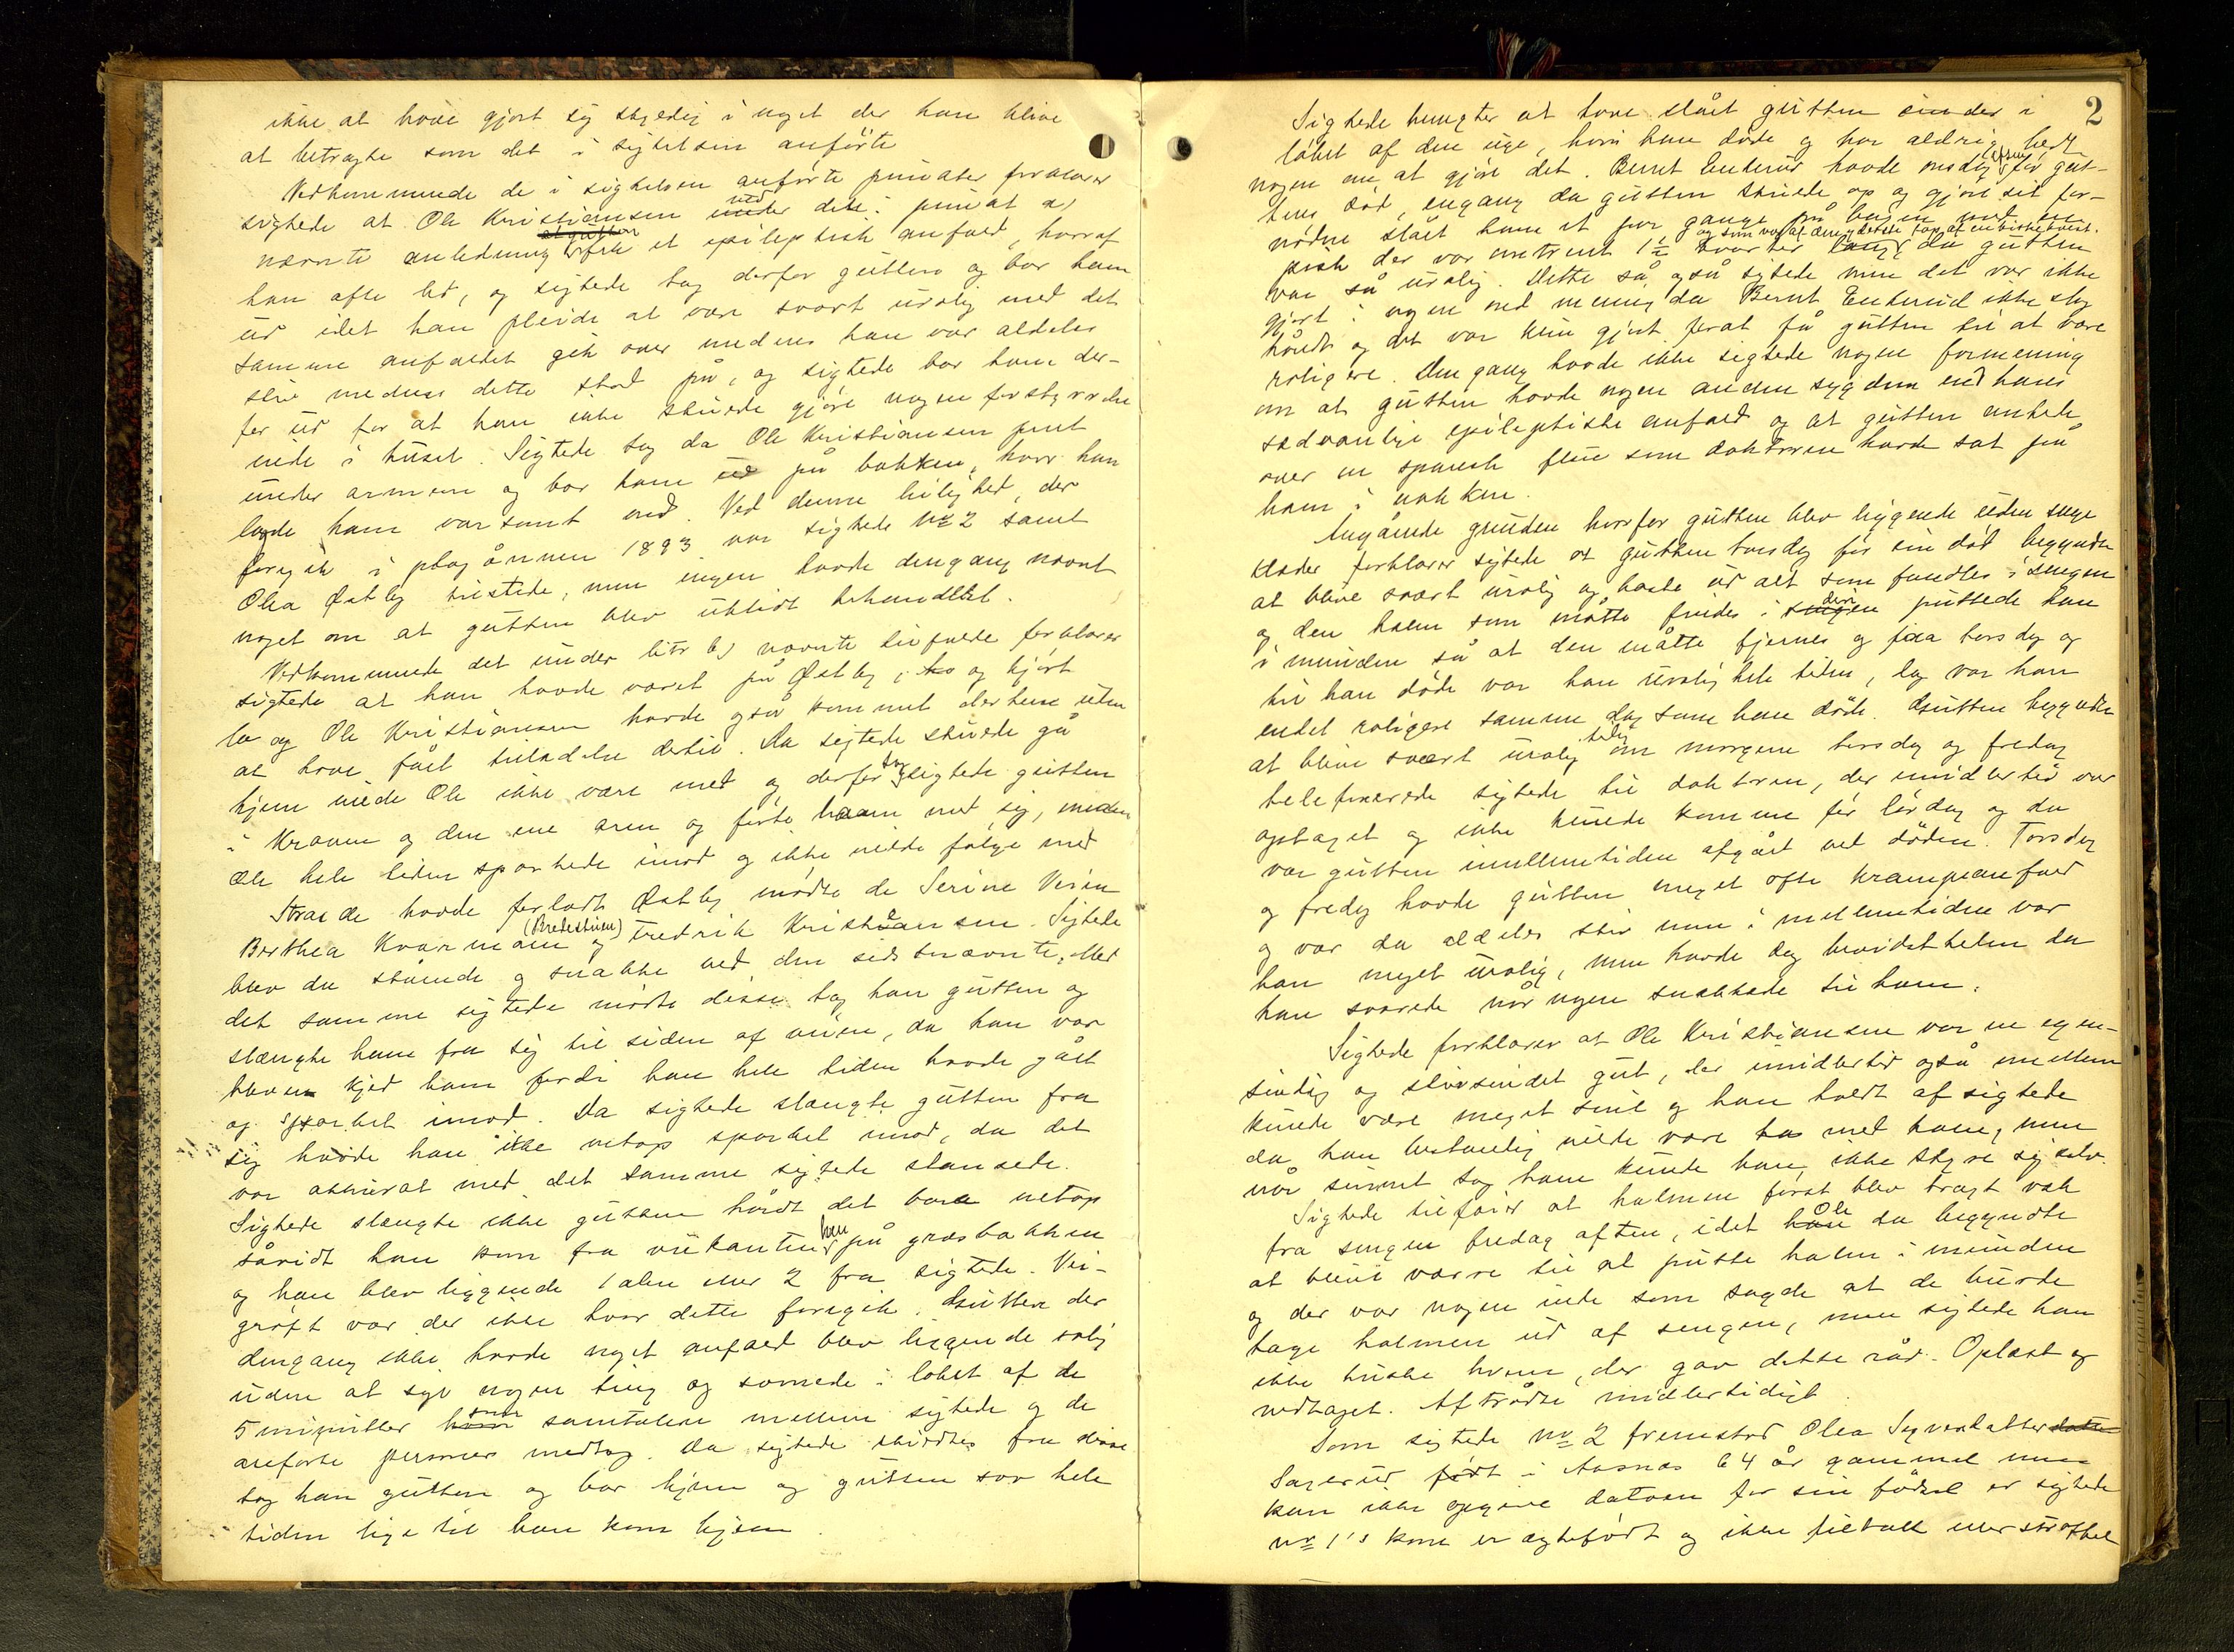 ikke at have gjort sig skyldig i noget der kan blive
at betragte som det i sigtelsen anførte
Vedkommende de i sigtelsen anførte punkter forklarer
sigtede at Ole Kristiansen ved den i punkt a)
nævnte anledning fik et epileptisk anfald, hvoraf
han ofte led, og sigtede tog derfor gutten og bar ham
ud idet han pleide at være svært urolig med det
samme anfaldet gik over medens han var aldeles
stiv medens dette stod på, og sigtede bar ham der-
for ud for at han ikke skulde gjøre nogen forstyrrelse
inde i huset. Sigtede tog da Ole Kristiansen pent
under armene og bar ham ud på bakken, hvor han
lagde ham varsomt ned. Ved denne leilighed, der
foregik i plogånnen 1893 var sigtede No 2 samt
Olea Østby tilstede, men ingen havde dengang nævnt
noget om at gutten blev ublidt behandlet.
Vedkommende det under litr b) nævnte tilfælde forklarer
sigtede at han havde været på Østby, og kjørt
og Ole Kristiansen havde også kommet derhen uden
at have fået tilladelse dertil. Da sigtede skulde gå
hjem vilde Ole ikke være med og derfor tog sigtede gutten
i kraven og den ene arm og førte ham med sig, medens
Ole hele tiden sparkede imod og ikke vilde følge med
Strax de havde forladt Østby mødte de Serine
Berthea Kvarmoen (Bredesturen) og Fredrik Kristiansen. Sigtede
blev da stående og snakke ved den sidstnævnte. Med
det samme sigtede mødte disse tog han gutten og
slængte ham fra sig til siden af veien, da han var
bleven kjed ham fordi han hele tiden havde gått
og sparket imod. Da sigtede slængte gutten fra
sig havde han ikke netop sparket imod, da det
var akkurat med det samme sigtede stansede.
Sigtede slængte ikke gutten hårdt det bare netop
såvidt han kom fra veikanten hen på græsbakken
og han blev liggende 1 alen eller 2 fra sigtede. Vei-
grøft var der ikke hvor dette foregik. Gutten der
dengang ikke havde noget anfald blev liggende rolig
uden at sige nogen ting og sovnede i løbet af de
5 minutter som samtalen mellem sigtede og de
anførte personer medtog. Da sigtede skiltes fra disse
tog han gutten og bar hjem og gutten sov hele
tiden lige til han kom hjem.
2
Sigtede benegter at have slået gutten under i
løbet af den uge, hvori han døde og har aldrig bedt
nogen om at gjøre det. Bernt Enkerud havde onsdag aften før gut-
tens død, engang da gutten skulde op og gjøre sit for-
nødne slået ham et par gange på bagen med en
pisk der var omtrent 1½ kvarter lang og som var af top af en birkekvist da gutten
var så urolig. Dette så også sigtede men det var ikke
gjort i nogen ond mening da Bernt Enkerud ikke slog
hårdt og det var kun gjort forat få gutten til at være
roligere. Den gang havde ikke sigtede nogen formening
om at gutten havde nogen anden sygdom end hans
sædvanlige epileptiske anfald og at gutten ankede
over en spansk flue som doktoren havde sat på
ham i nakken.
Angående grunden hvorfor gutten blev liggende uden senge
klæder forklarer sigtede at gutten torsdag før sin død begyndte
at blive svært urolig og kaste ud alt som fandtes i sengen
og den halm som måtte findes i den puttede han
i munden så at den måtte fjernes og fra torsdag og
til han døde var han urolig hele tiden, dog var han
endel roligere samme dag som han døde. Gutten begyndte
at blive svært urolig tidlig om morgenen torsdag og fredag
telefonerede sigtede til doktoren, der imidlertid var
optaget og ikke kunde komme før lørdag og da
var gutten imellemtiden afgået ved døden. Torsdag
og fredag havde gutten meget ofte krampeanfald
og var da aldeles stiv men i mellemtiden var
han meget urolig, men havde dog bevidstheden da
han svarede når nogen snakkede til ham.
Sigtede forklarer at Ole Kristiansen var en egen-
sindig og stivsindet gut, der imidlertid også imellem
kunde være meget snil og han holdt af sigtede
da han bestandig vilde være med ham, men
når sinnet tog ham kunde han ikke styre sig selv.
Sigtede tilføier at halmen først blev bragt væk
fra sengen fredag aften, idet Ole da begyndte
at blive værre til at putte halm i munden
og der var nogen inde som sagde at de burde
tage halmen ud af sengen, men sigtede kan
ikke huske hvem, der gav dette råd. Oplæst og
vedtaget. Aftrådte midlertidigt.
Som sigtede No 2 fremstod Olea Syversdatter
født i Aasnæs 64 år gammel men
kan ikke opgive datoen for sin fødsel er sigtede
No 1's kone er ægtefødt og ikke tiltalt eller straffet